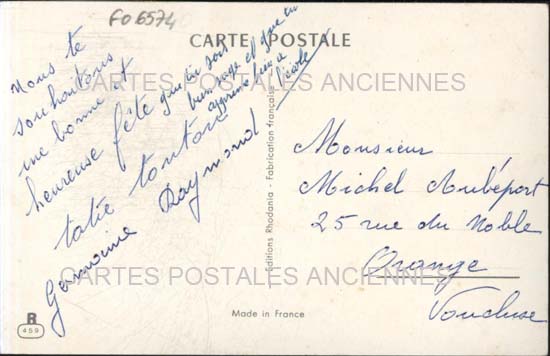 FO 6574
CARTE POSTALE
Nous te
souhaitons
une bonne et
heureuse fête que tu sois
bien sage et que tu
apprenne bien a
l'école
tatie tonton
Germaine Raymond
CARTES POSTALES ANCIENNES
Editions Rhodania - Fabrication française
Monsieur
Michel Aubépart
25 rue du Noble
Orange
Vaucluse
CARTES POSTALES ANCIENNES
Made in France
R
459